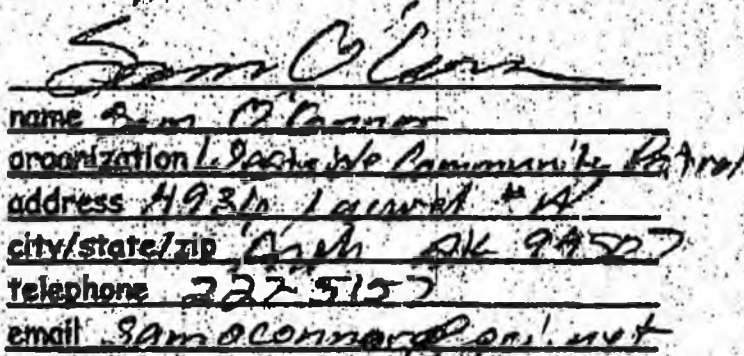 Sam O'Conn
name Sam O'Connor
organization Community Patrol
address 4936
city/state/zip Anch AK 99507
telephone 227 5157
email